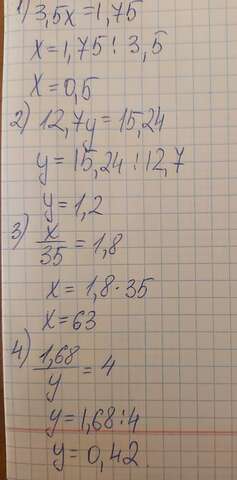 1) 3,5x=1,75
x=1,75:3,5
x=0,5
2) 12,7y=15,24
y=15,24:12,7
y=1,2
3) x/35=1,8
x=1,8·35
x=63
4) 1,68/y=4
y=1,68:4
y=0,42